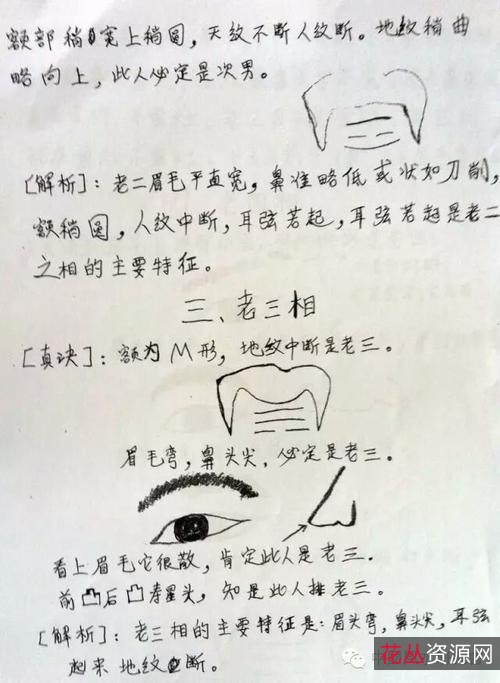 额部稍宽上稍圆，天纹不断人纹断。地纹稍曲
略向上，此人必定是次男。
[解析]：老二眉毛平直宽，鼻准略低或状如刀削，
额稍圆，人纹中断，耳弦若起，耳弦若起是老二
之相的主要特征。
三、老三相
[真诀]：额为M形，地纹中断是老三。
眉毛弯，鼻头尖，必定是老三。
看上眉毛它很散，肯定此人是老三。
前凸后凸寿星头，知是此人排老三。
[解析]：老三相的主要特征是：眉头弯，鼻头尖，耳弦
起来地纹断。
花丛资源网